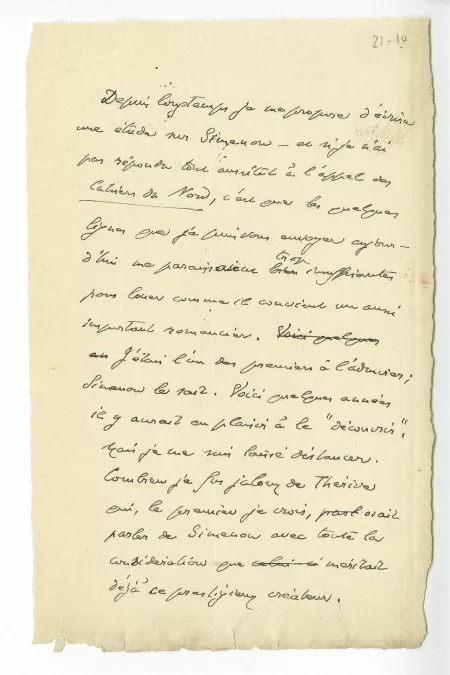 21-10
Depuis longtemps je me propose d'écrire
une étude sur Simenon – et si je n'ai
pas répondu tout aussitôt à l'appel des
Cahiers du Nord, c'est que les quelques
lignes que je puis vous envoyer aujour-
trop
d'hui me paraissaient bien insuffisantes
pour louer comme il convient un aussi
important romancier. Voici quelques
en J'étais l'un des premiers à l'admirer ;
Simenon le sait. Voici quelques années
il y aurait eu plaisir à le "découvrir".
Mais je me suis laissé distancer.
Combien je fus jaloux de Thérive
qui, le premier je crois, avait
parler de Simenon avec toute la
considération que celui-ci méritait
déjà ce prestigieux créateur.